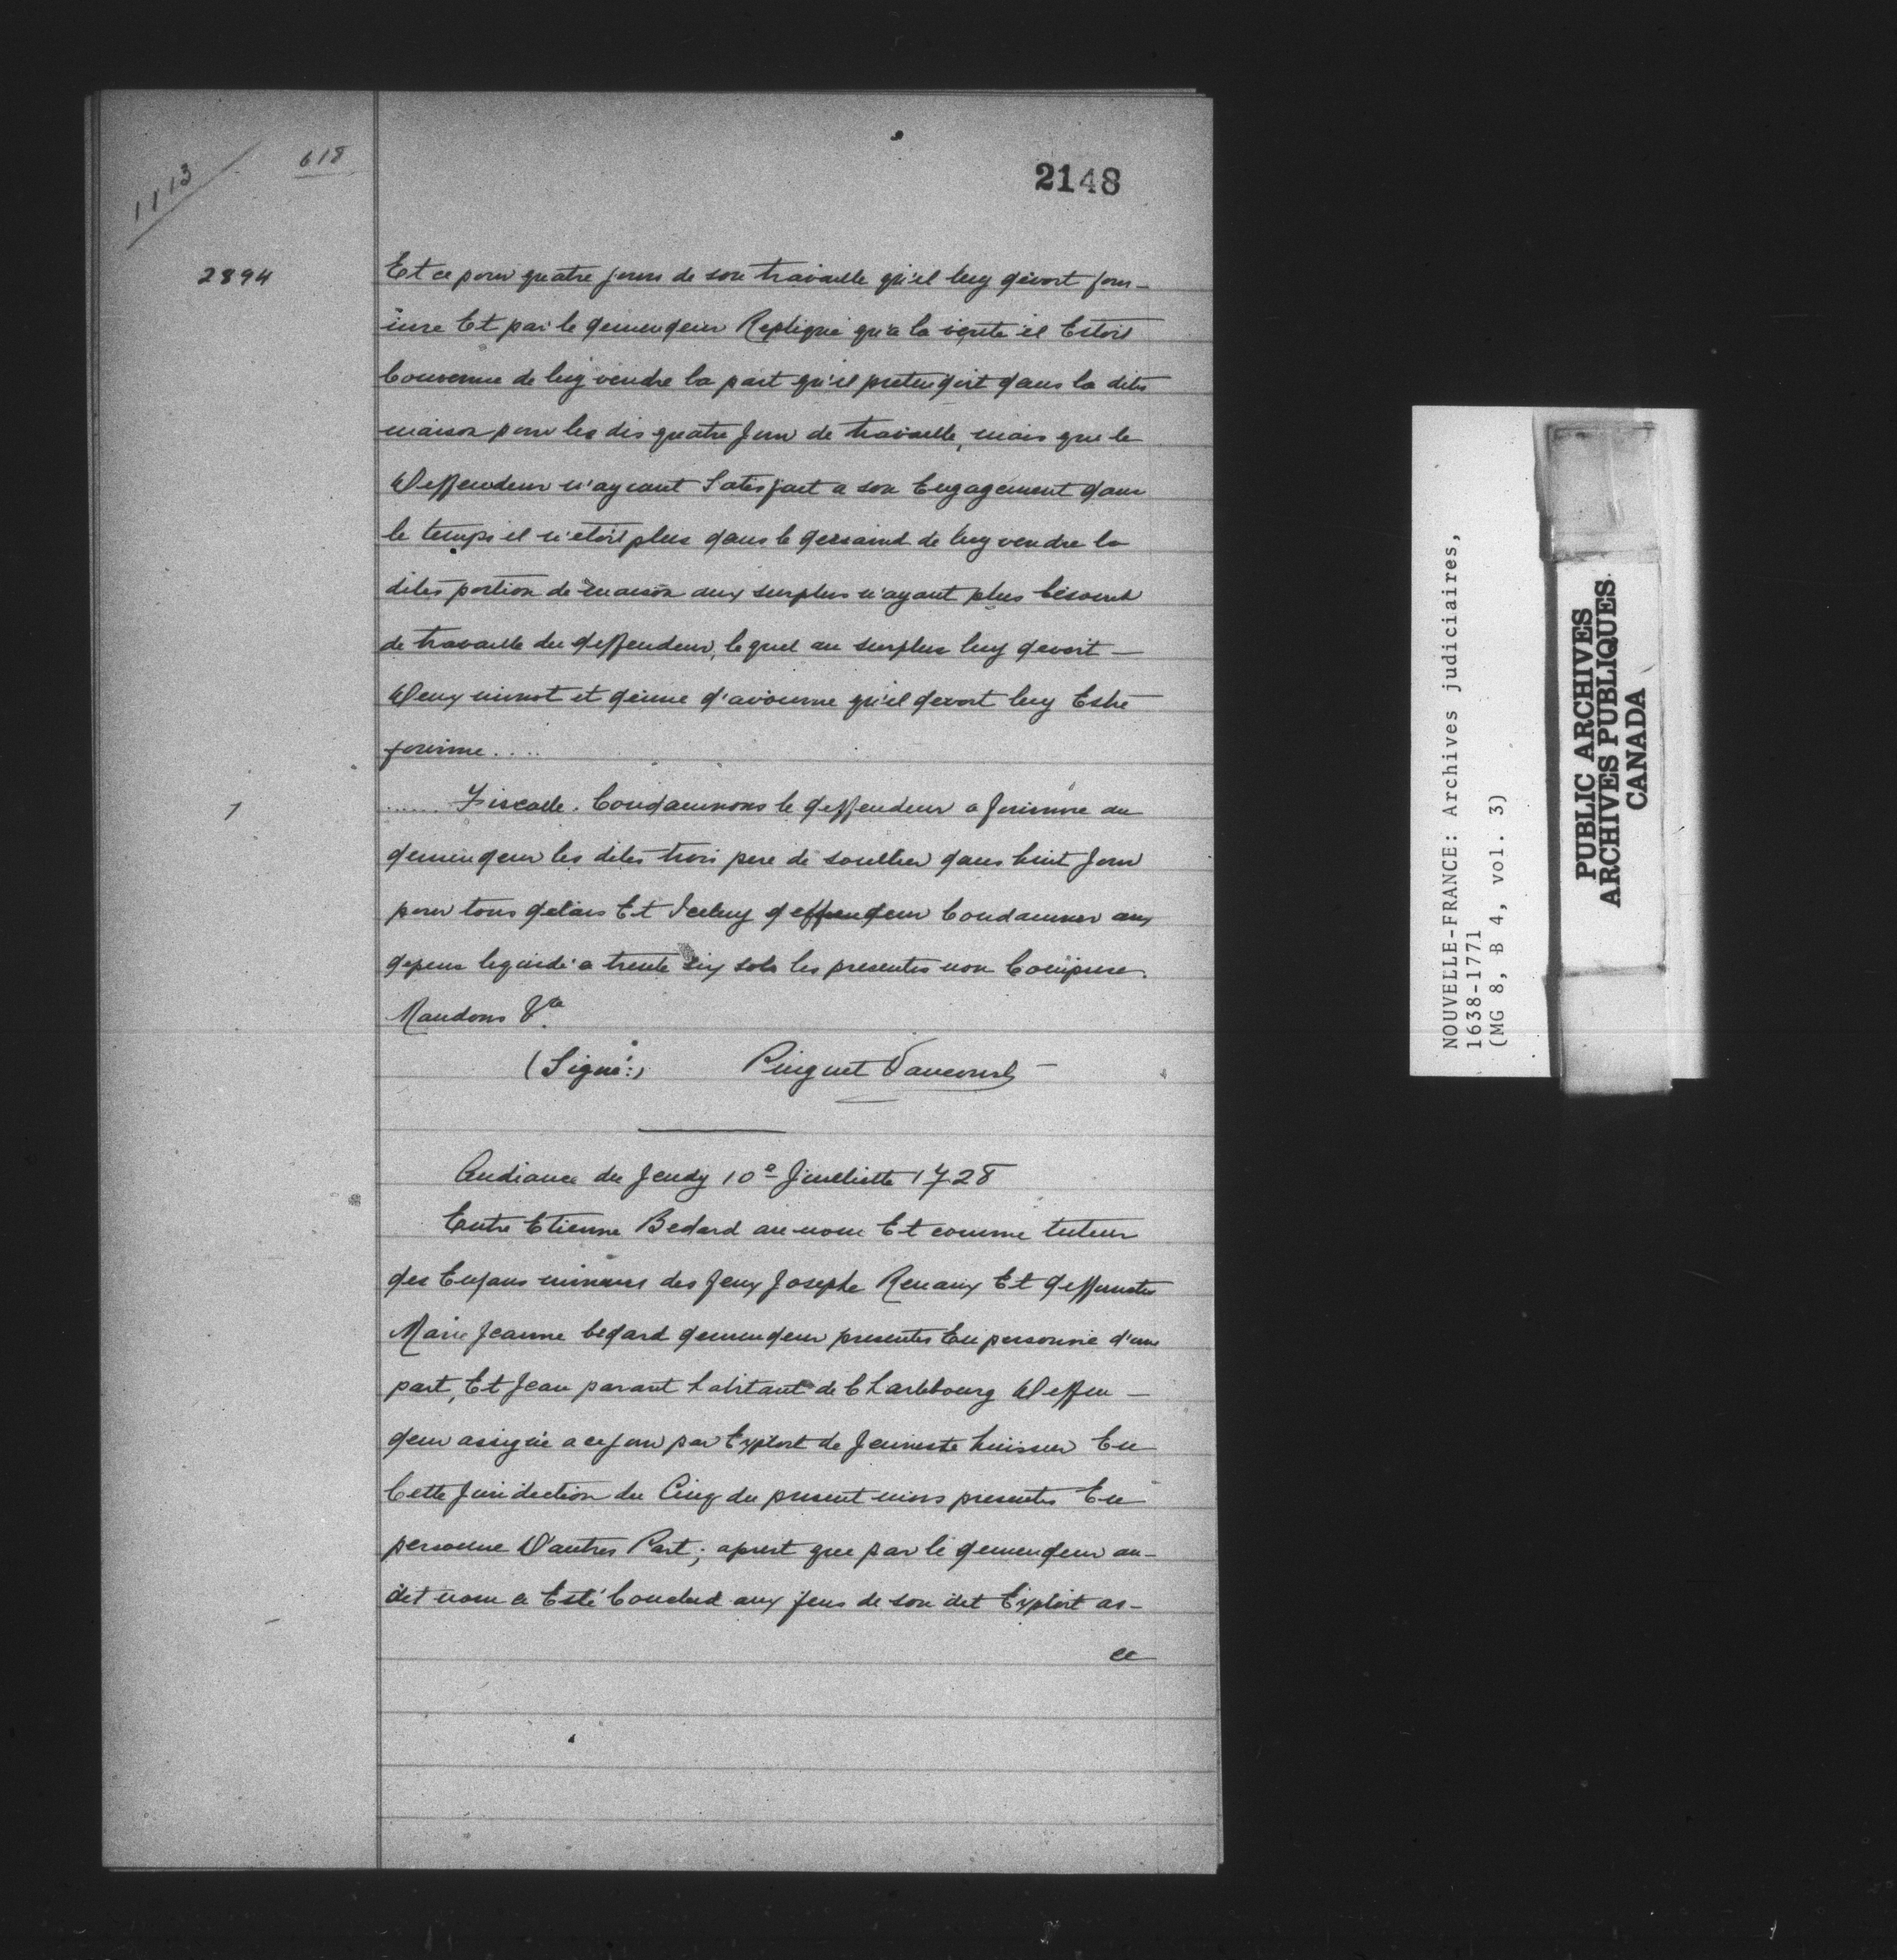 1113
618
2148
2894
Et ce pour quatre jours de son travaille qu'il luy devoit four-
inre Et par le demendeur Repliqué qu'a la verité il Estois
Convenue de luy vendre la part qu'il pretendoit dans la dites
maison pour les dis quatre Jour de travaille, mais que le
Deffendeur n'ayeant Satisfait a son Engagement dans
le temps il n'etois plus dans le dessaind de luy vendre la
dites portion de maison aux surplus n'ayant plus besoend
de travaille du deffendeur, lequel au surplus luy devoit —
Deux minot et deime d'avoinne qu'il devoit luy Estre
fourinne....
1
...... Fiscalle. Condamnons le deffendeur a fourinne au
demendeur les dites trois pere de soullier dans huit Jour
pour tous delais Et Iceluy deffendeur Condamner aux
depens liquidé a trente Six sols les presentes non Comprise.
Mandons &a
(Signé:) Pinguet Vaucours
Audiance du Jeudy 10e Juilliette 1728
Entre Etienne Bedard au nom Et comme tuteur
des Enfans mineurs des feux Josephe Renaux Et deffunctes
Marie Jeanne bedard demendeur presentes En personne d'une
part, Et Jean parant habitant de Charlebourg Deffen-
deur assigné a ce jour par Exploit de Jeuneste huissier En
Cette Juridiction du Cinq du present mois presentes En
personne D'autres Part; aprest que par le demendeur au-
dit nom a Esté Conclud aux fens de son dit Exploit as-
ce
NOUVELLE-FRANCE: Archives judiciaires,
1638-1771
(MG 8, B 4, vol. 3)
PUBLIC ARCHIVES
ARCHIVES PUBLIQUES
CANADA